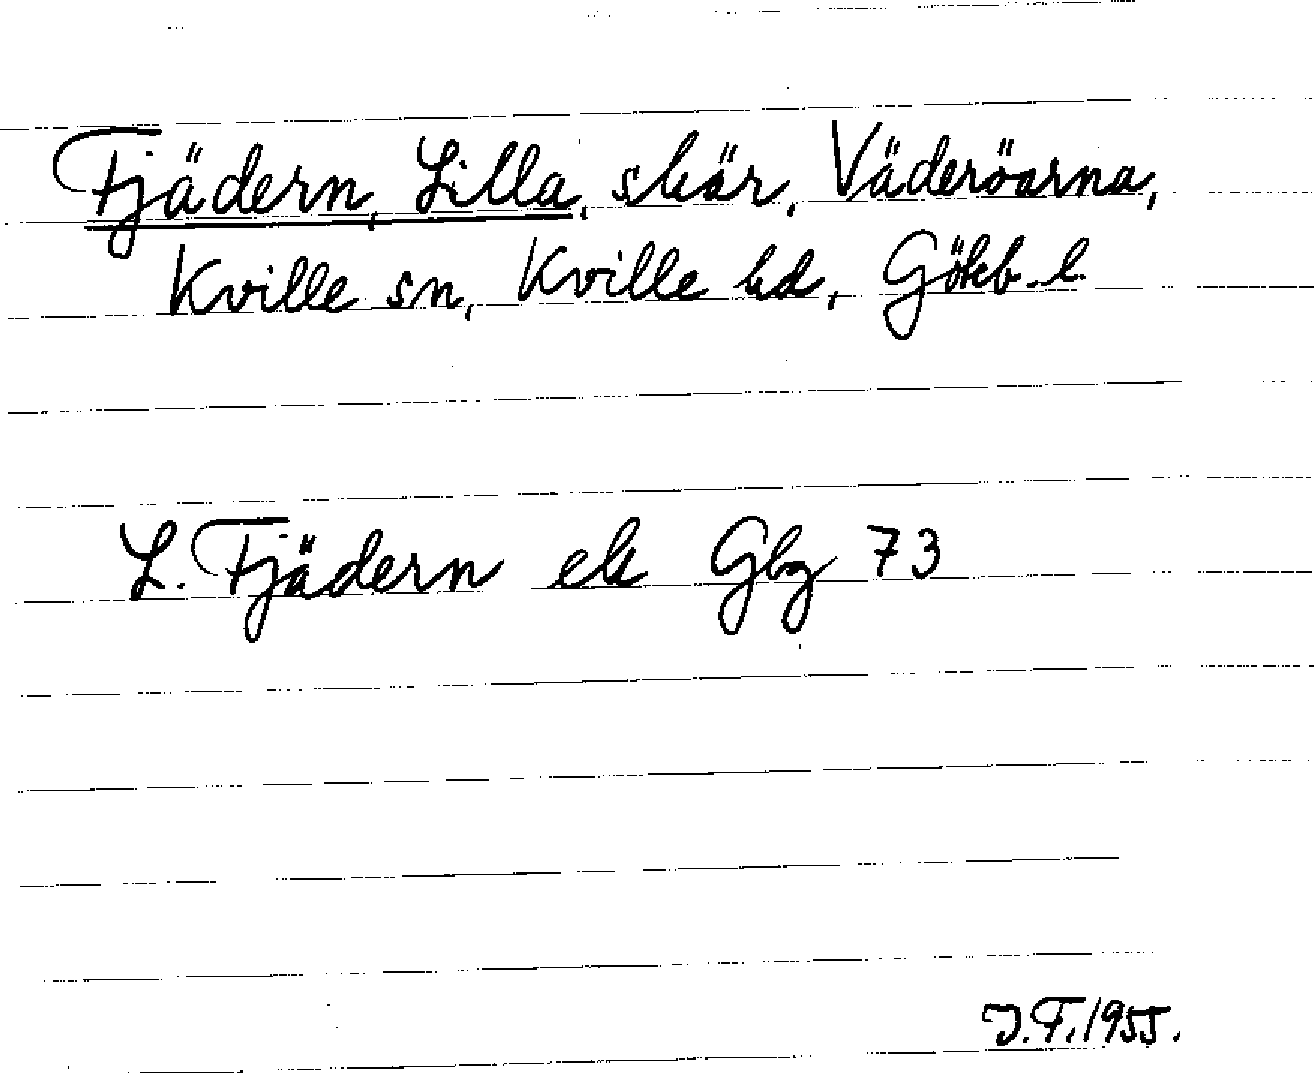 Fjädern, Lilla, skär, Väderöarna,
Kville sn, Kville hd, Göteb. l.
L. Fjädern ek Gbg 73
J.F. 1955.